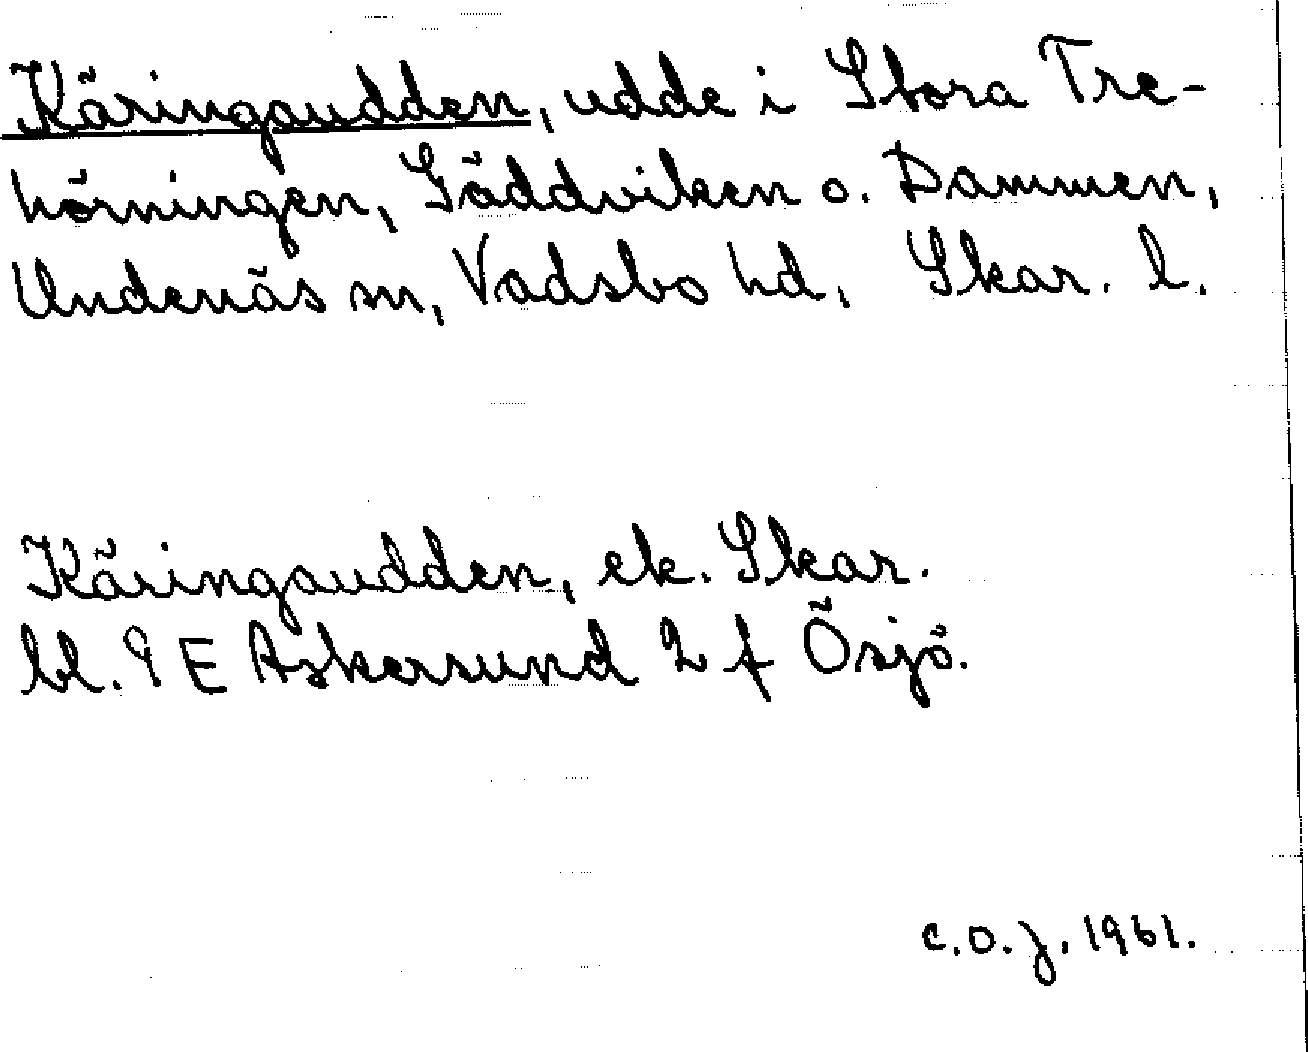 Käringaudden, udde i Stora Tre-
hörningen, Gäddviken o. Dammen,
Undenäs sn, Vadsbo hd, Skar. l.
Käringaudden, ek. Skar.
bl. 9 E Askersund 2 f Ösjö.
C.O.J. 1961.